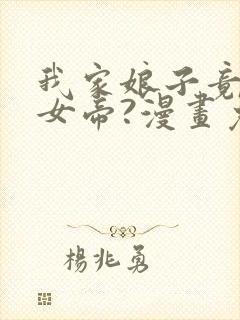 我家娘子竟
女帝?漫畫
楊兆勇